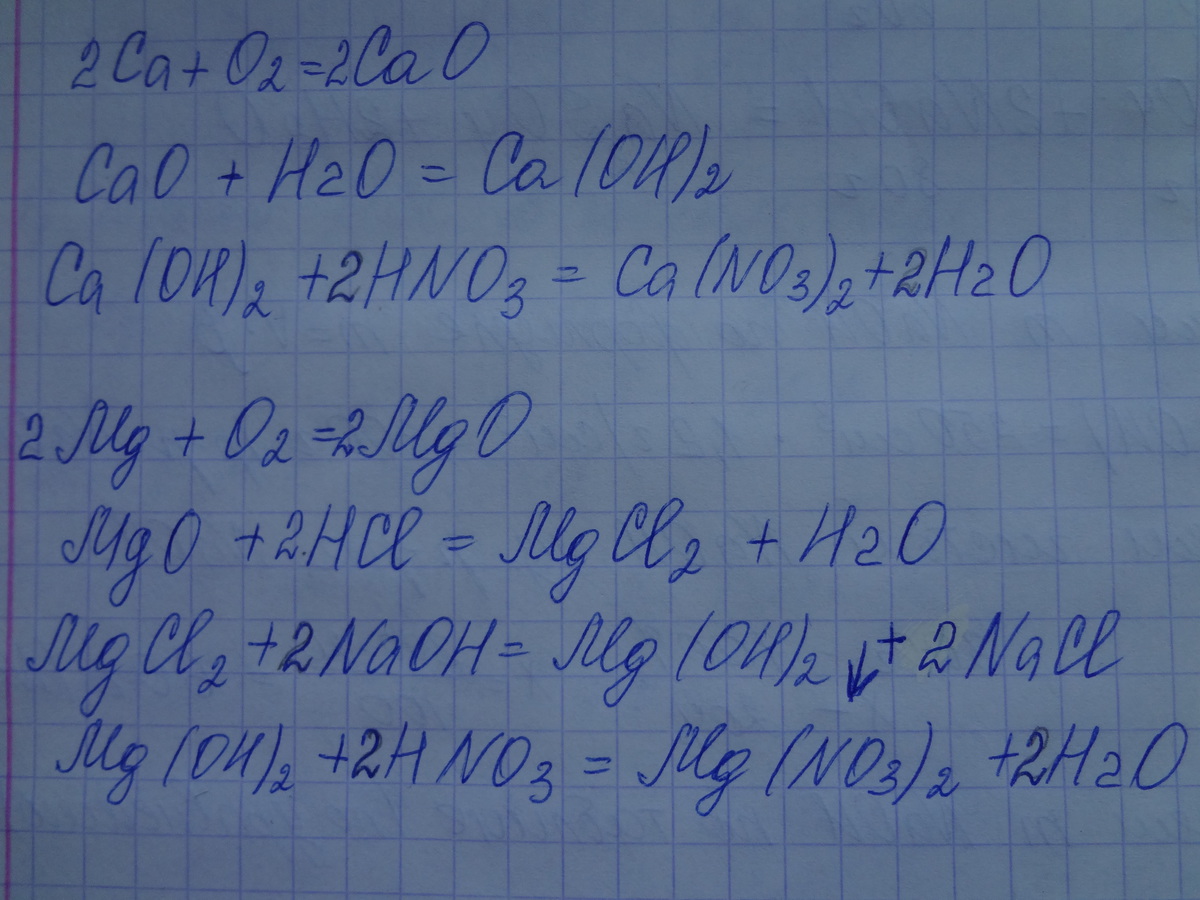 2Ca + O2 = 2CaO
CaO + H2O = Ca(OH)2
Ca(OH)2 + 2HNO3 = Ca(NO3)2 + 2H2O
2Mg + O2 = 2MgO
MgO + 2HCl = MgCl2 + H2O
MgCl2 + 2NaOH = Mg(OH)2 ↓ + 2NaCl
Mg(OH)2 + 2HNO3 = Mg(NO3)2 + 2H2O